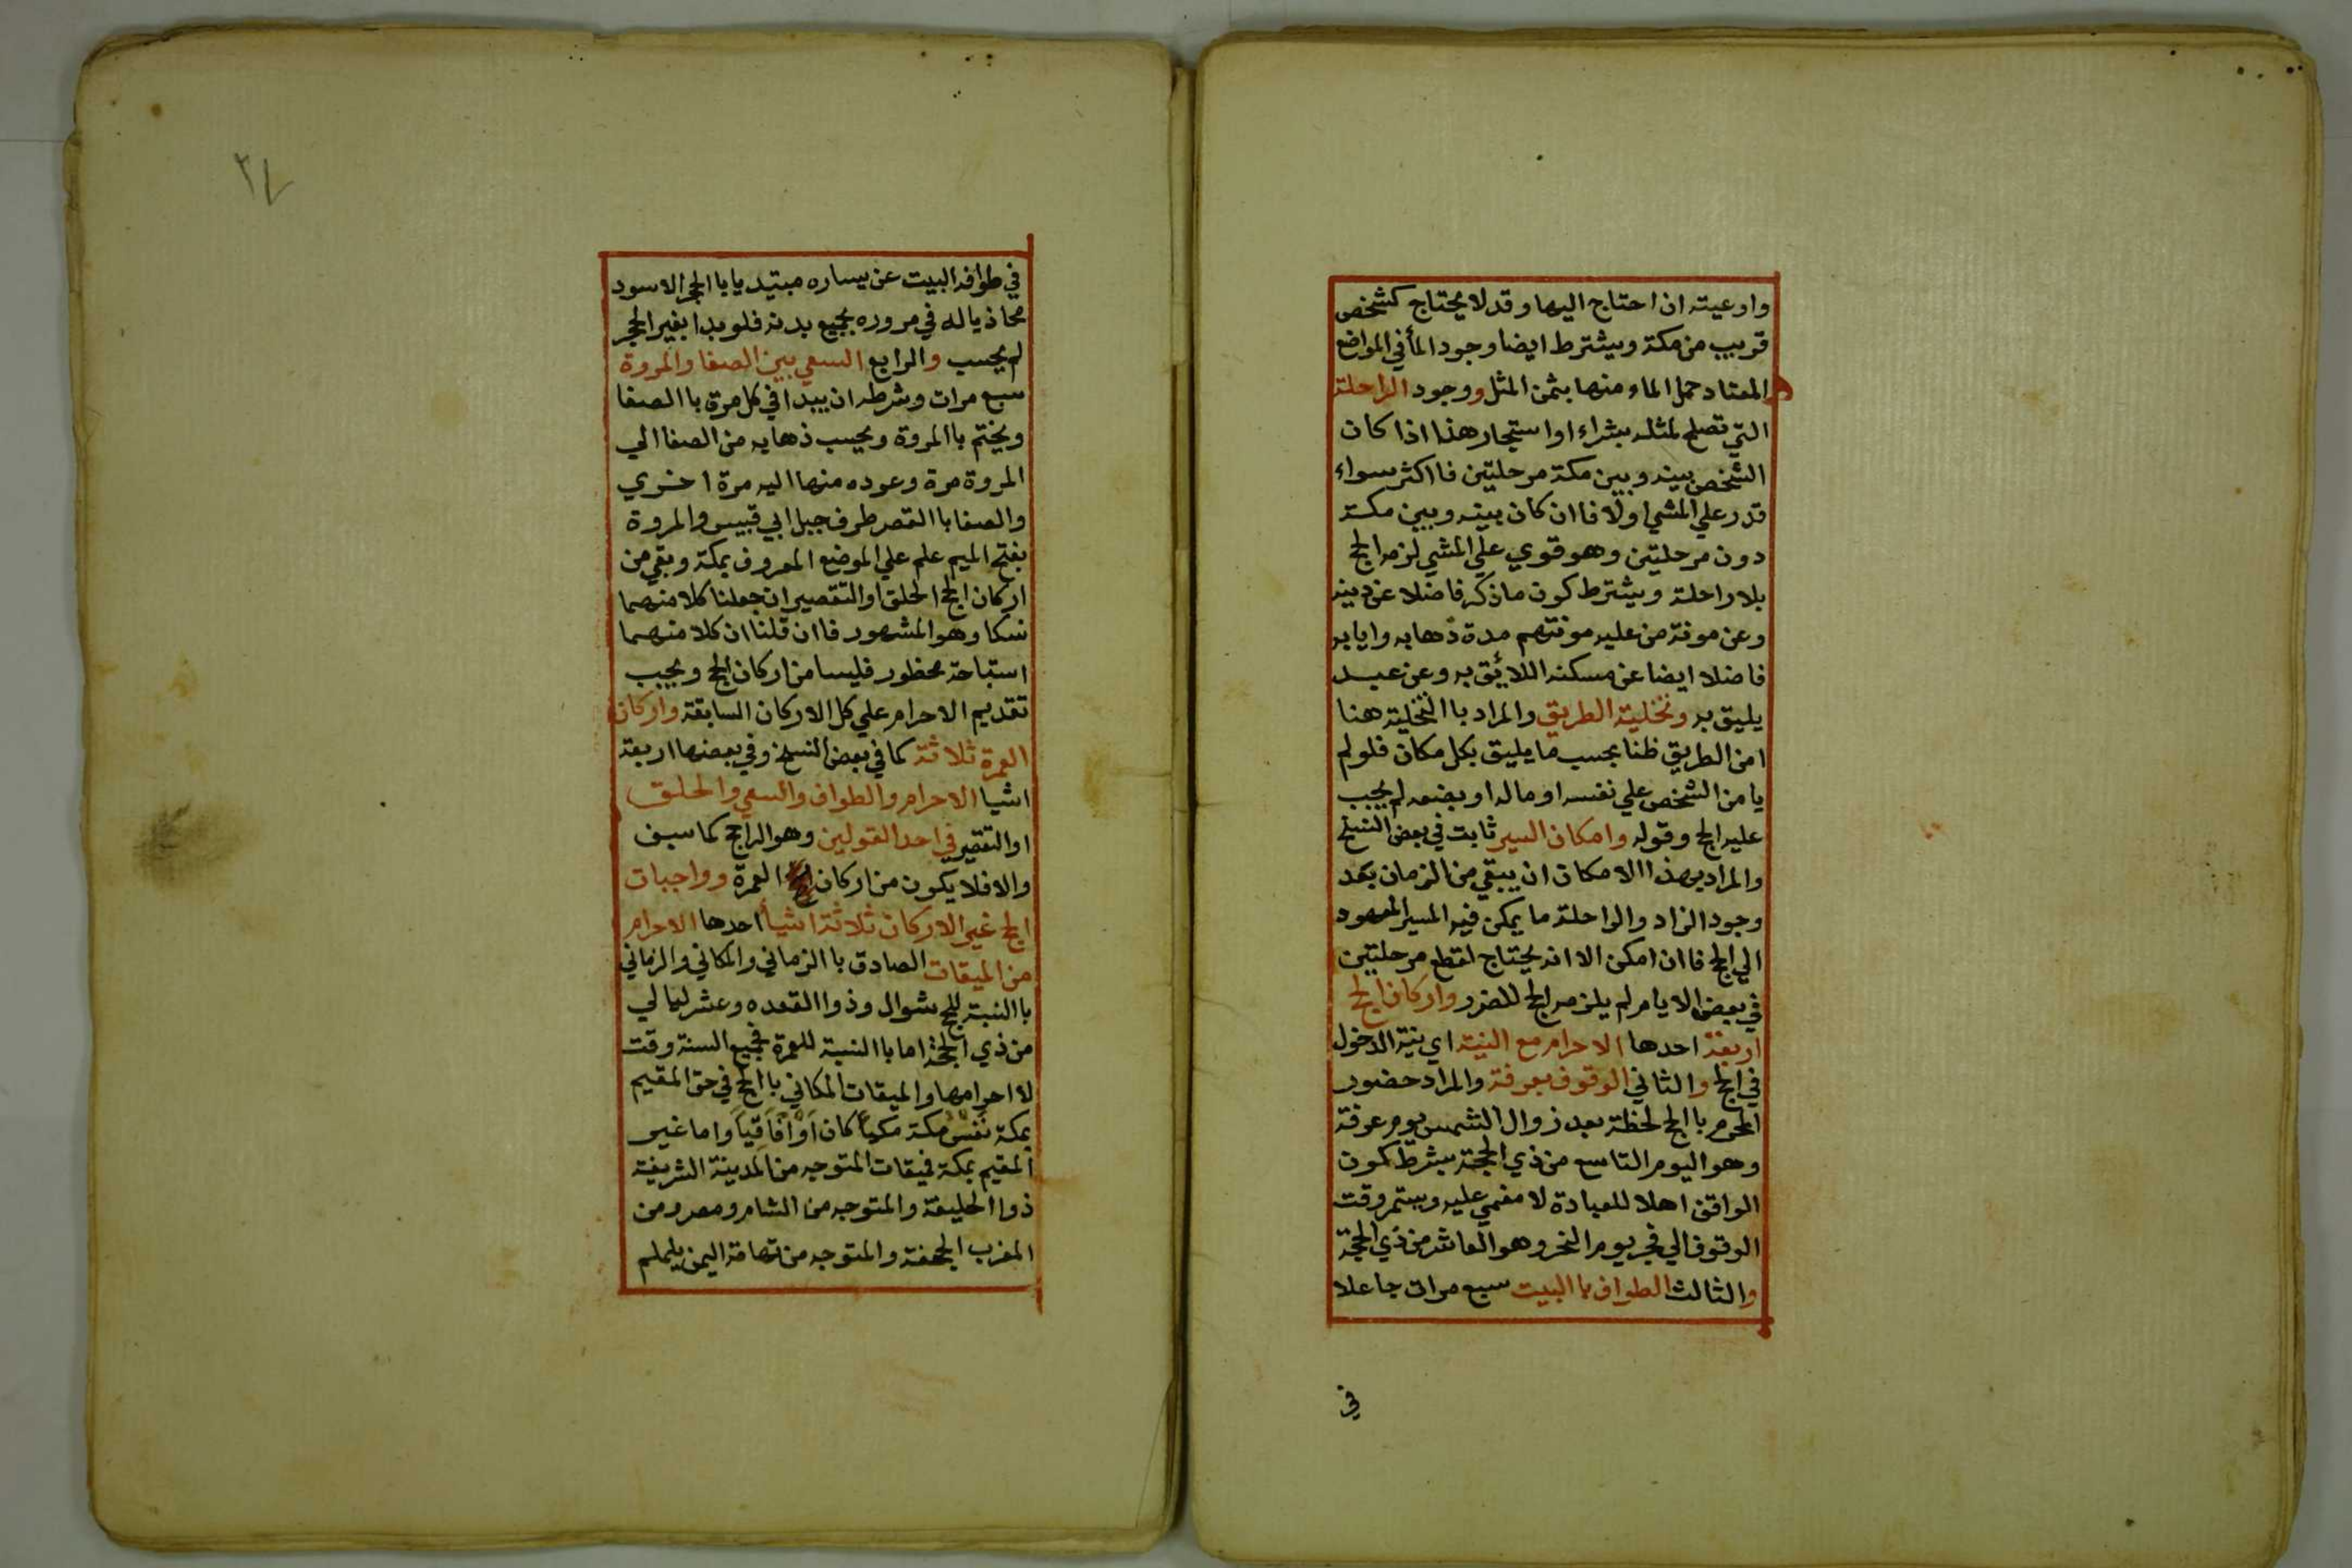 واوعيته ان احتاج اليها وقد لا يحتاج كشخص
قريب من مكة ويشترط ايضا وجود المأ في المواضع
المعتاد حمل الماء منها بثمن المثل ووجود الراحلة
التي تصلح لمثله بشراء او استيجار هذا اذا كان
الشخص بينه وبين مكة مرحلتين فااكثر سواء
قدر علي المشي اولا فاان كان بينه وبين مكة
دون مرحلتين وهو قوي علي المشي لزمه الحج
بلا راحلة ويشترط كون ماذكر فاضلا عن دينه
وعن مونة من عليه مونتهم مدة ذهابه وايابه
فاضلا ايضا عن مسكنه اللائق به وعن عبد
يليق به وتخلية الطريق والمراد باالتخلية هنا
امن الطريق ظنا بحسب ما يليق بكل مكان فلو لم
يامن الشخص علي نفسه او ماله او بضعه لم يجب
عليه الحج وقوله وامكان السير ثابت في بعض النسخ
والمراد بهذا الامكان ان يبقي من الزمان بعد
وجود الزاد والراحلة ما يمكن فيه المسير المعهود
الي الحج فاان امكن الا انه يحتاج لقطع مرحلتين
في بعض الايام لم يلزمه الحج للضرر واركان الحج
اربعة احدها الاحرام مع النية اي نية الدخول
في الحج والثاني الوقوف بعرفة والمراد حضور
المحرم باالحج لحظة بعد زوال الشمس يوم عرفة
وهو اليوم التاسع من ذي الحجة بشرط كون
الواقف اهلا للعبادة لا مغمي عليه ويستمر وقت
الوقوف الي فجر يوم النحر وهو العاشر من ذي الحجة
والثالث الطواف باالبيت سبع مرات جاعلا
في
٢٧
في طوافه البيت عن يساره مبتديا باالحجر الاسود
محاذيا له في مروره بجميع بدنه فلو بدا بغير الحجر
لم يحسب والرابع السعي بين الصفا والمروة
سبع مرات وشرطه ان يبدا في كل مرة باالصفا
ويختم باالمروة ويحسب ذهابه من الصفا الي
المروة مرة وعوده منها اليه مرة اخري
والصفا باالقصر طرف جبل ابي قبيس والمروة
بفتح الميم علم علي الموضع المعروف بمكة وبقي من
اركان الحج الحلق او التقصير ان جعلنا كلا منهما
نسكا وهو المشهور فاان قلنا ان كلا منهما
استباحة محظور فليسا من اركان الحج ويجب
تقديم الاحرام علي كل الاركان السابقة واركان
العمرة ثلاثة كما في بعض النسخ وفي بعضها اربعة
اشيا الاحرام والطواف والسعي والحلق
او التقصير في احد القولين وهو الراجح كما سبق
والا فلا يكون من اركان العمرة وواجبات
الحج غير الاركان ثلاثة اشيأ احدها الاحرام
من الميقات الصادق باالزماني والمكاني والزماني
باالنسبة للحج شوال وذوا القعده وعشر ليالي
من ذي الحجة اما باالنسبة للعمرة فجميع السنة وقت
لا احرامها والميقات المكاني باالحج في حق المقيم
بمكة نفس مكة مكيا كان اوآفاقيا واما غير
المقيم بمكة فميقات المتوجه من المدينة الشريفة
ذوا الحليفة والمتوجه من الشام ومصر ومن
المغرب الجحفة والمتوجه من تهامة اليمن يلملم